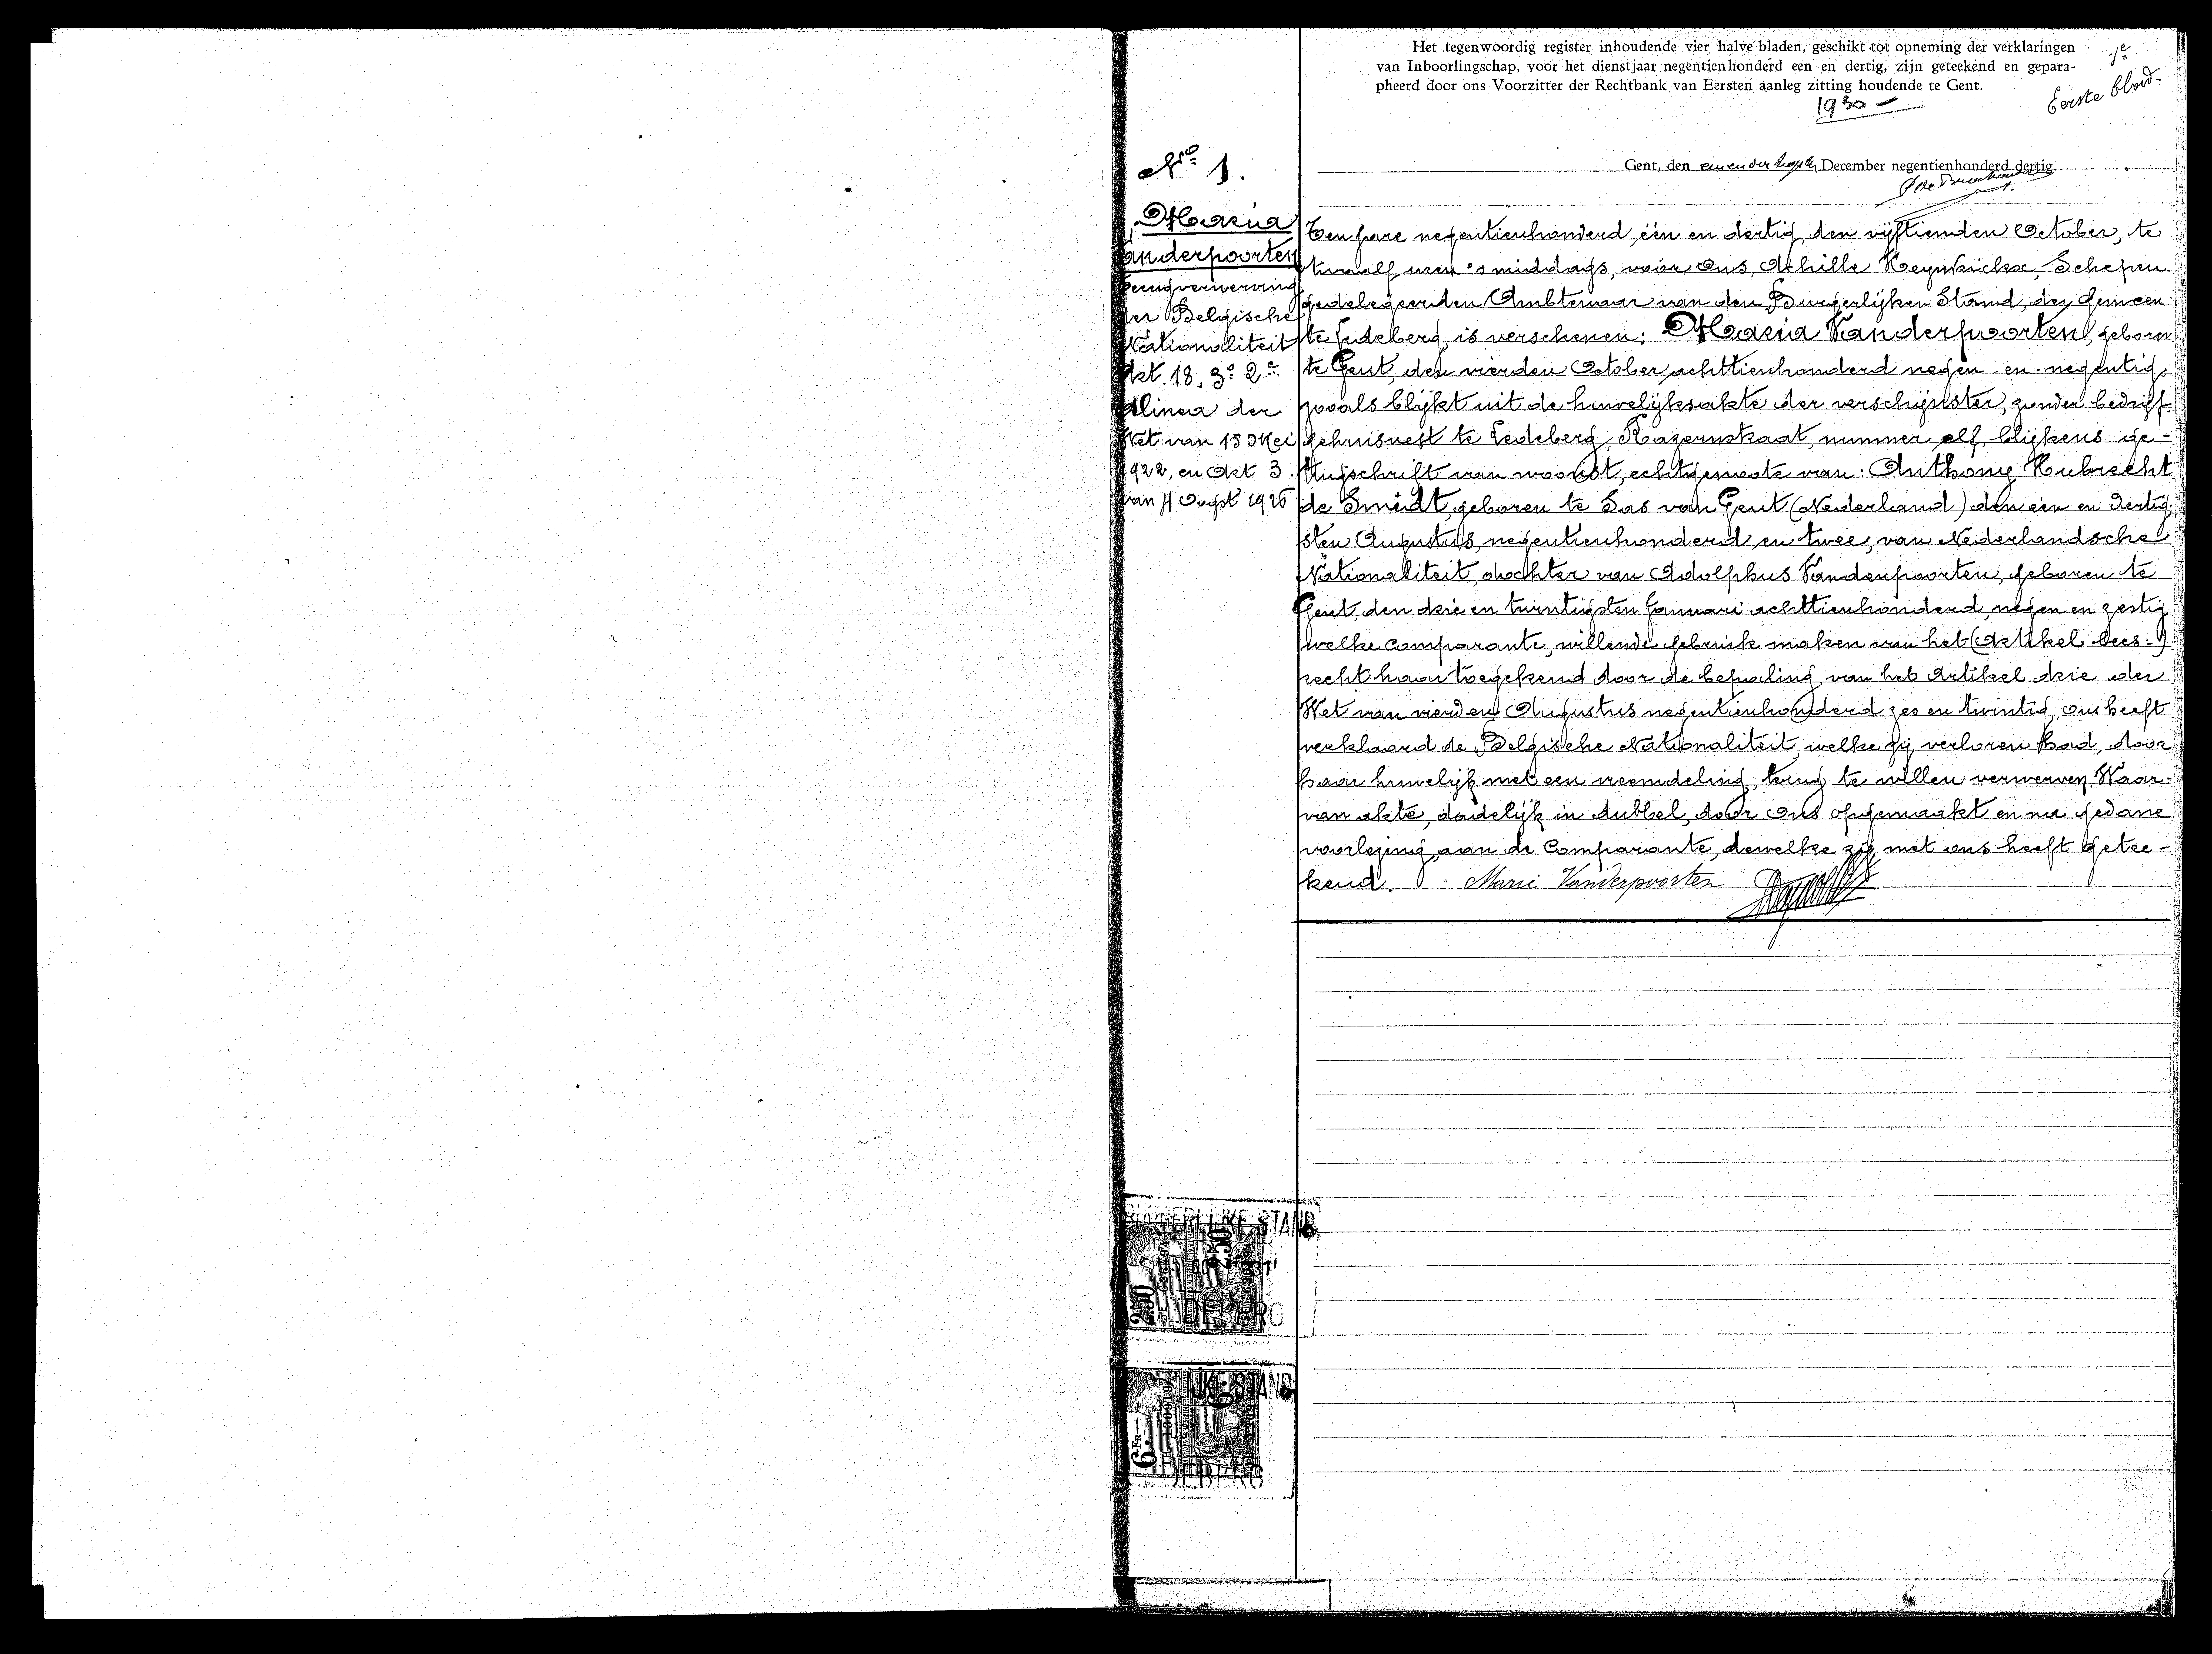 Het tegenwoordig register inhoudende vier halve bladen, geschikt tot opneming der verklaringen
van Inboorlingschap, voor het dienstjaar negentienhonderd een en dertig, zijn geteekend en gepara-
pheerd door ons Voorzitter der Rechtbank van Eersten aanleg zitting houdende te Gent.
1e
Eerste blad.
1930 -
Gent, den een en dertigsten December negentienhonderd dertig.
No 1.
Maria
Vanderpoorten
Terugverwerving
der Belgische
Nationaliteit
Art. 18, 3o 2e
Alinea der
Wet van 15 Mei
1922, en Art 3
van 4 Oogst 1926
Ten jare negentienhonderd één en dertig, den vijftienden October, te
twaalf uren 's middags, voor Ons, Achille Schepen
gedelegeerden Ambtenaar van den Burgerlijken Stand, der Gemeen
te Ledeberg, is verschenen: Maria Vanderpoorten, geboren
te Gent, den vierden October achttienhonderd negen en negentig,
zooals blijkt uit de huwelijksakte der verschijnster, zonder bedrijf
gehuisvest te Ledeberg, Kazernstraat, nummer elf, blijkens ge-
tuigschrift van woonst, echtgenoote van: Anthony Hubrecht
de Smidt, geboren te Sas van Gent (Nederland) den één en dertig
sten Augustus, negentienhonderd en twee, van Nederlandsche
Nationaliteit, dochter van Adolphus Vanderpoorten, geboren te
Gent, den drie en twintigsten Januari achttienhonderd, negen en zestig
welke comparante, willende gebruik maken van het (Artikel lees:)
recht haar toegekend door de bepaling van het Artikel drie der
Wet van vierden Augustus negentienhonderd zes en twintig, ons heeft
verklaard de Belgische Nationaliteit, welke zij verloren had, door
haar huwelijk met een vreemdeling, terug te willen verwerven. Waar-
van akte, dadelijk in dubbel, door Ons opgemaakt en na gedane
voorlezing aan de Comparante, dewelke zij met ons heeft getee-
kend. Marie Vanderpoorten
BURGERLIJKE STAND
15 OCT 1931
2.50
2.50
DEBERG
IJKE STAND
6
OCT
6 Fr
DEBERG